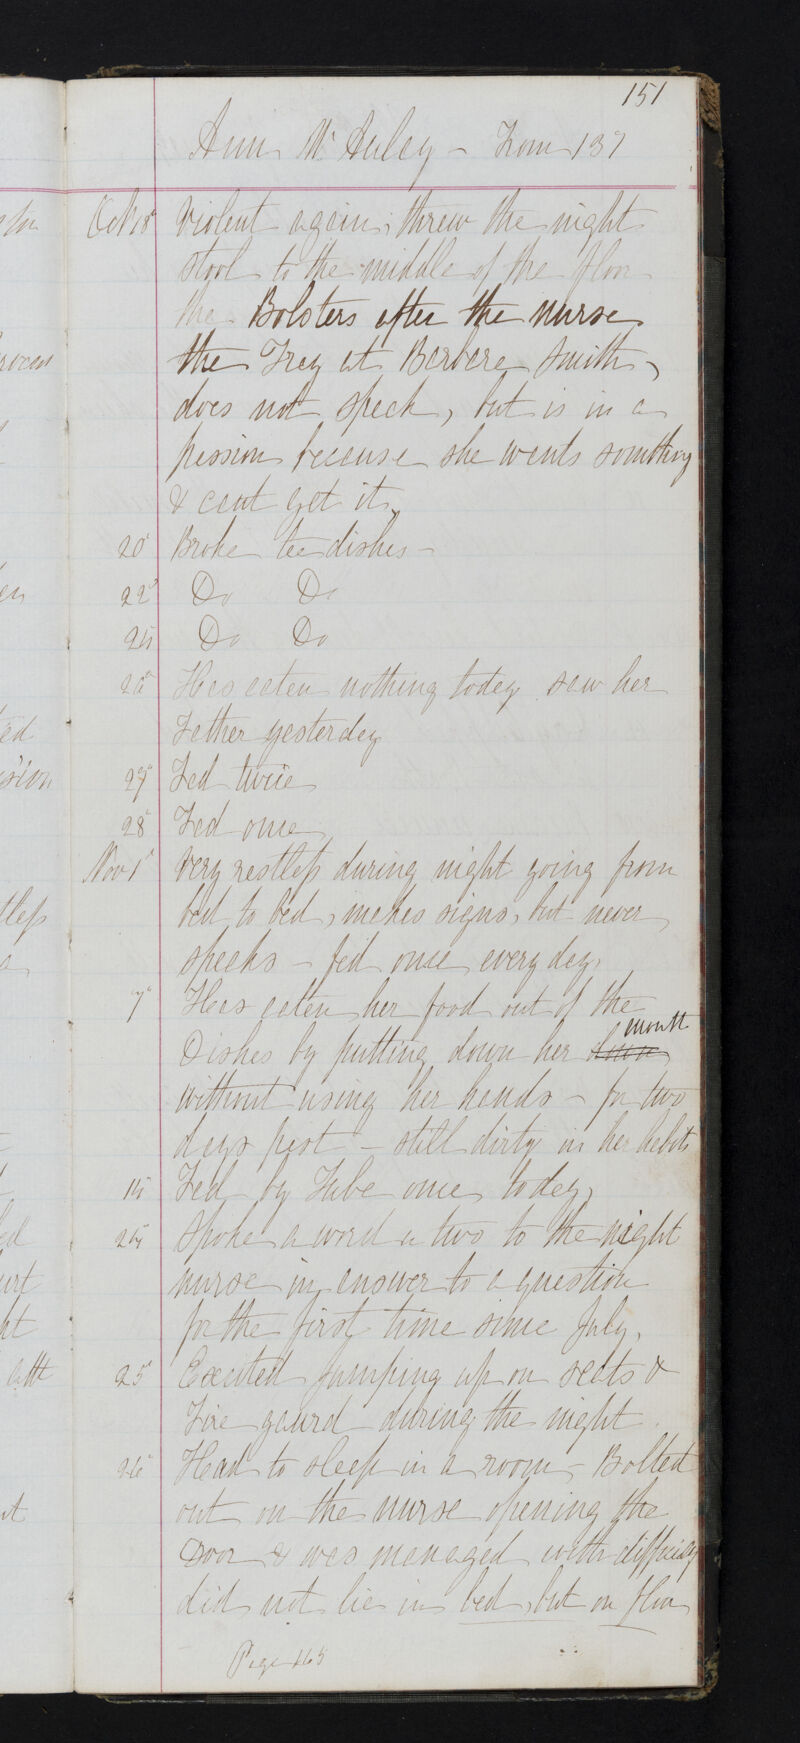 151
Ann McAuley - From 137
Oct 18 Violent again, threw the night
stool to the middle of the floor
the Bolsters after the nurse
the Tray at Barbara Smith,
does not speak, but is in a
passion because she wants something
& cant get it,
20 Broke tea dishes -
22 Do Do
24 Do Do
Has eaten nothing today saw her
Father yesterday
27 Fed twice
28 Fed once
Nov 1 Very restless during night going from
bed to bed, makes signs, but never
speaks - fed once every day,
7 Has eaten her food out of the
Dishes by putting down her mouth
without using her hands - for two
days past - still dirty in her habits
Fed by Tube once today,
24 Spoke a word or two to the night
nurse in answer to a question
for the first time since July,
25 Excited jumping up on seats &
Fire gaurd during the night.
26 Had to sleep in a room - Bolted
out on the nurse opening the
Door & was managed with difficulty
did not lie in bed, but on floor
Page 165